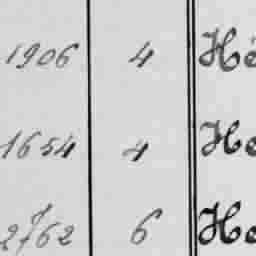 1906 4 Hé
1654 4 He
2762 6 He